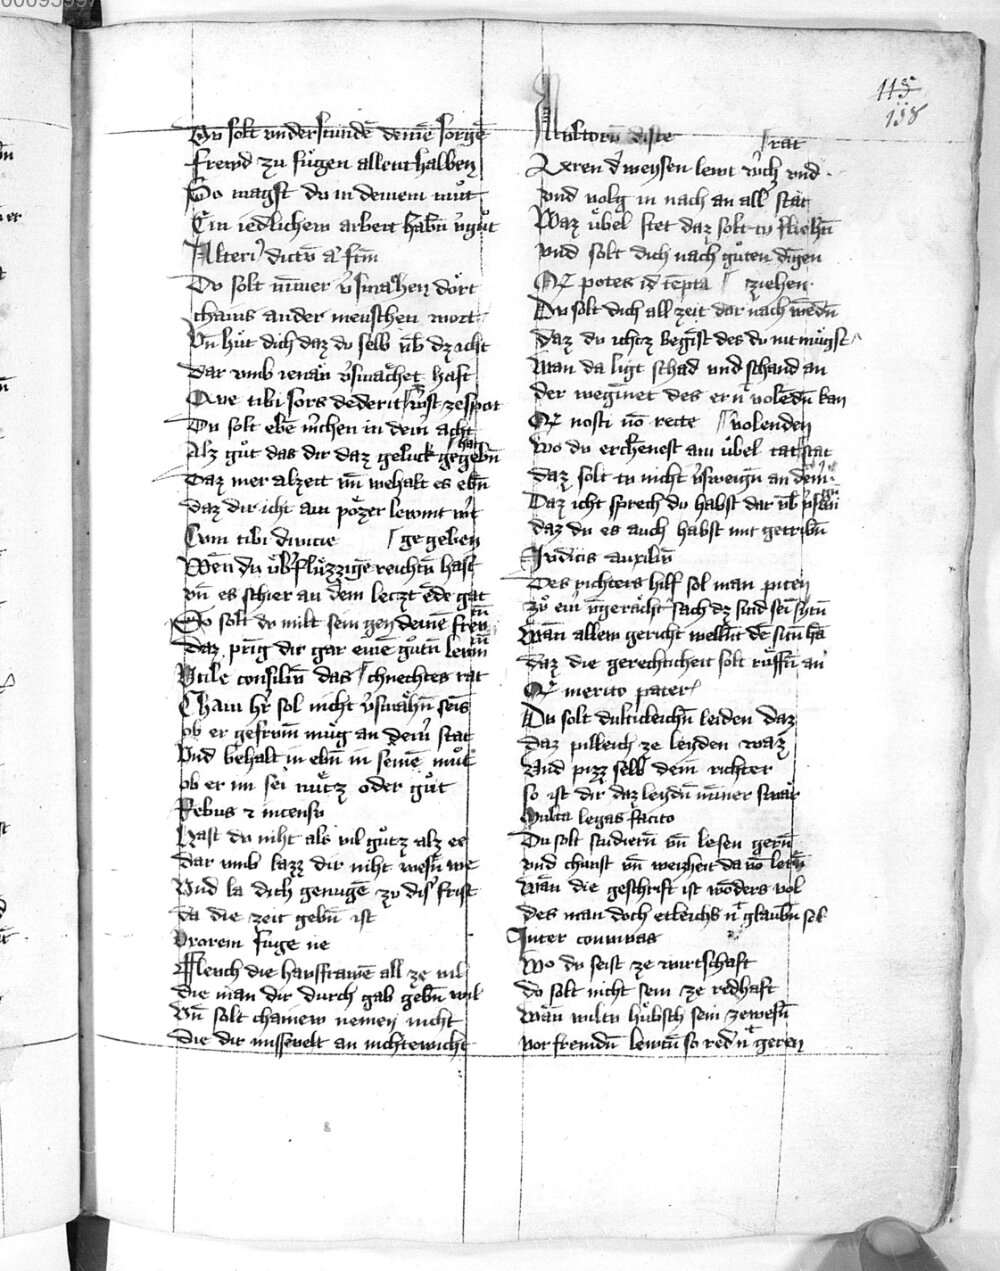 115
158
Du solt underſtundē deinē ſorgē
frewd zu fuͤgen allenthalben
So magſt du in deinem muͦt
Ein iedlichew arbeit habn̄ v̓guͦt
Alteri᾽ dictū a᾽ ftm̄
Du ſolt nim̄er v̓ſmahen doͤrt
chains ander menſchen wort
Vn̄ huͤt dich daz du ſelb vͤb dz icht
Dar vmb iemār v̓ſmaͤchet haſt
Que tibi ſors dederit
Du ſolt ebē m̓chen in dein acht
Alz guͦt das dir daz geluck gegebn̄ hat
Daz mer alzeit vn̄ wehalt es ebn̄
daz dir icht ain poͤzer lewnt w̓t
Cum tibi diuicie gegeben
Wen̄ du uͤb᾽fluͤzzigē reichtn̄ haſt
vn̄ es ſchier an dem leczt ēde gat
So ſolt du milt ſein gen deinē
daz pring dir gar ainē guͦtn̄ lewn̄
Vtile conſiliū das chnechtes rat
Chain h᾽r ſol nicht v̓ſmaͤhn̄ ſeīs
ob er gefrom̄ muͤg an dem̓ ſtat
Vnd behalt in ebn̄ in ſeinē muͦt
ob er im ſei nuͤtz oder guͦt
Rebus ⁊ incenſu
Haſt du niht als vil guͦtz alz ee
dar vmb lazz dir niht weſn̄ we
Vnd la dich genugē zu diſ᾽ friſt
da die zeit gebn̄ iſt
Vxorem fuge ne
Fleuch die hauſfrawē all ze vil
die man dir durch gab gebn̄ wil
Vn̄ ſolt chainew nemen nicht
die dir miſſeuelt an nichtewicht
Multorū diſce rat
Leren d᾽ weyſen lewt vnd
vnd volg in nach an all ſtat
Waz uͤbel ſtet daz ſolt tu fliehn̄
vnd ſolt dich nach guͦten dīgen
Qd potes id tēpta ziehen
Du ſolt dich all zeit dar nach wēdn̄
daz du ichcz begīſt des du nit muͤgſt
Wan da ligt ſchad vnd ſchand an
der weginnet des er n᾽ volēdn̄ kan
Qd noſti nō recte volenden
Wo du erchēneſt ain uͤbel tat
daz ſolt tu nicht v̓ſweign̄ an dem
Daz icht ſprech du habſt dar vb
daz du es auch habſt mit getribn̄
Iudicis auxiliū
Des richters hilf ſol man piten
zuͦ ein᾽ vn̄geraͤcht᾽ ſach dz ſind ſeī ſytn̄
Wan̄ allew gericht wellnt
daz die gerechticheit ſolt ruͤffn̄ an
Qd merito pater
Du ſolt dulticleichn̄ leiden daz
daz pilleich ze leyden waz
Vnd pizz ſelb dein richter
ſo iſt dir daz leydn̄ nim̄er ſwaͤr
Multa legas facito
Du ſolt ſtudiern̄ vn̄ leſen gern̄
vnd chunſt vn̄ weizheit da vō lern̄
wan̄ die geſchrift iſt wōders vol
des man doch etleichs n᾽ glaubn̄ ſol
Inter conuiuas
Wo du ſeiſt ze wirtſchaft
do ſolt nicht ſein ze redhaft
Wan̄ wiltu huͤbſch ſein zeweſn̄
vor fremdn̄ lewtn̄ ſo red n᾽ geren